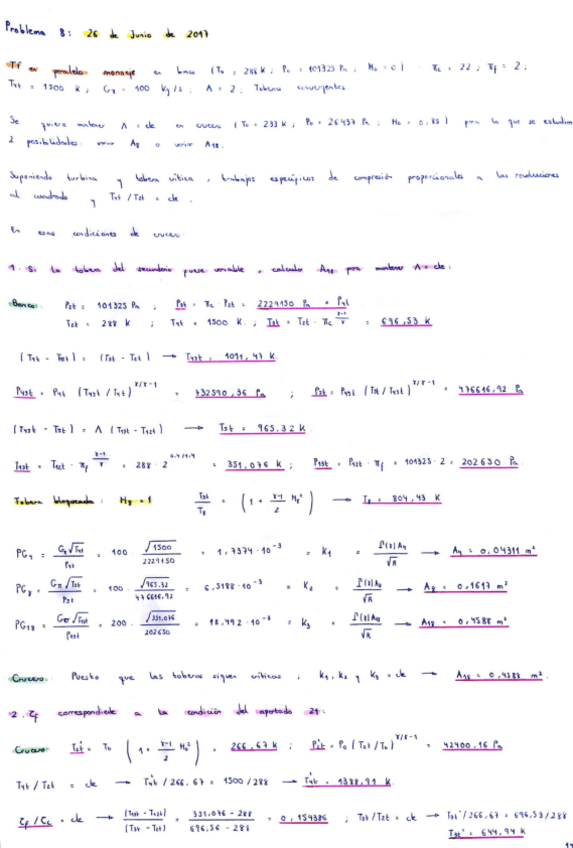 Problema 8: 26 de Junio de 2017
TF en paralelo monoeje en banco (T0 = 288 K ; P0 = 101325 Pa ; M0 = 0) πc = 22 ; πf = 2 ;
T4t = 1500 K ; G = 100 kg/s ; Λ = 2 ; Toberas convergentes
Se quiere mantener Λ = cte en crucero (T0 = 233 K ; P0 = 26437 Pa ; M0 = 0,85) por lo que se estudian
2 posibilidades: variar A8 o variar A18.
Suponiendo turbina y tobera crítica, trabajos específicos de compresión proporcionales a las revoluciones
al cuadrado y T4t / T2t = cte.
En esas condiciones de crucero:
1. Si la tobera del secundario fuese variable, calcular A18 para mantener Λ = cte:
Banco: P2t = 101325 Pa ; P3t = πc · P2t = 2229150 Pa = P4t
T2t = 288 K ; T4t = 1500 K ; T3t = T2t · πc^(γ-1/γ) = 696,53 K
(T4t - T45t) = (T3t - T2t) → T45t = 1091,47 K
P45t = P4t (T45t / T4t)^(γ/γ-1) = 732590,36 Pa ; P5t = P45t (T5t / T45t)^(γ/γ-1) = 476616,92 Pa
(T45t - T5t) = Λ (T13t - T12t) → T5t = 965,32 K
T13t = T12t · πf^(γ-1/γ) = 288 · 2^(0,4/1,4) = 351,076 K ; P13t = P12t · πf = 101325 · 2 = 202650 Pa
Tobera bloqueada: M8 = 1 T5t / T8 = (1 + γ-1/2 M8²) → T8 = 804,43 K
PG4 = G√T4t / P4t = 100 · √1500 / 2229150 = 1,7374 · 10⁻³ = K1 = Γ(γ)A4 / √R → A4 = 0,04311 m²
PG8 = G√T5t / P5t = 100 · √965,32 / 476616,92 = 6,5188 · 10⁻³ = K2 = Γ(γ)A8 / √R → A8 = 0,1617 m²
PG18 = G√T13t / P13t = 200 · √351,076 / 202650 = 18,492 · 10⁻³ = K3 = Γ(γ)A18 / √R → A18 = 0,4588 m²
Crucero: Puesto que las toberas siguen críticas ; K1, K2 y K3 = cte → A18 = 0,4588 m².
2. ζf correspondiente a la condición del apartado
Crucero: T2t' = T0 (1 + γ-1/2 M0²) = 266,67 K ; P2t' = P0 (T2t / T0)^(γ/γ-1) = 42400,16 Pa
T4t / T2t = cte → T4t' / 266,67 = 1500 / 288 → T4t' = 1388,91 K
ζf / ζc = cte → (T13t - T12t) / (T3t - T2t) = 351,076 - 288 / 696,56 - 288 = 0,154386 ; T3t / T2t = cte → T3t' / 266,67 = 696,53 / 288
T3t' = 644,94 K